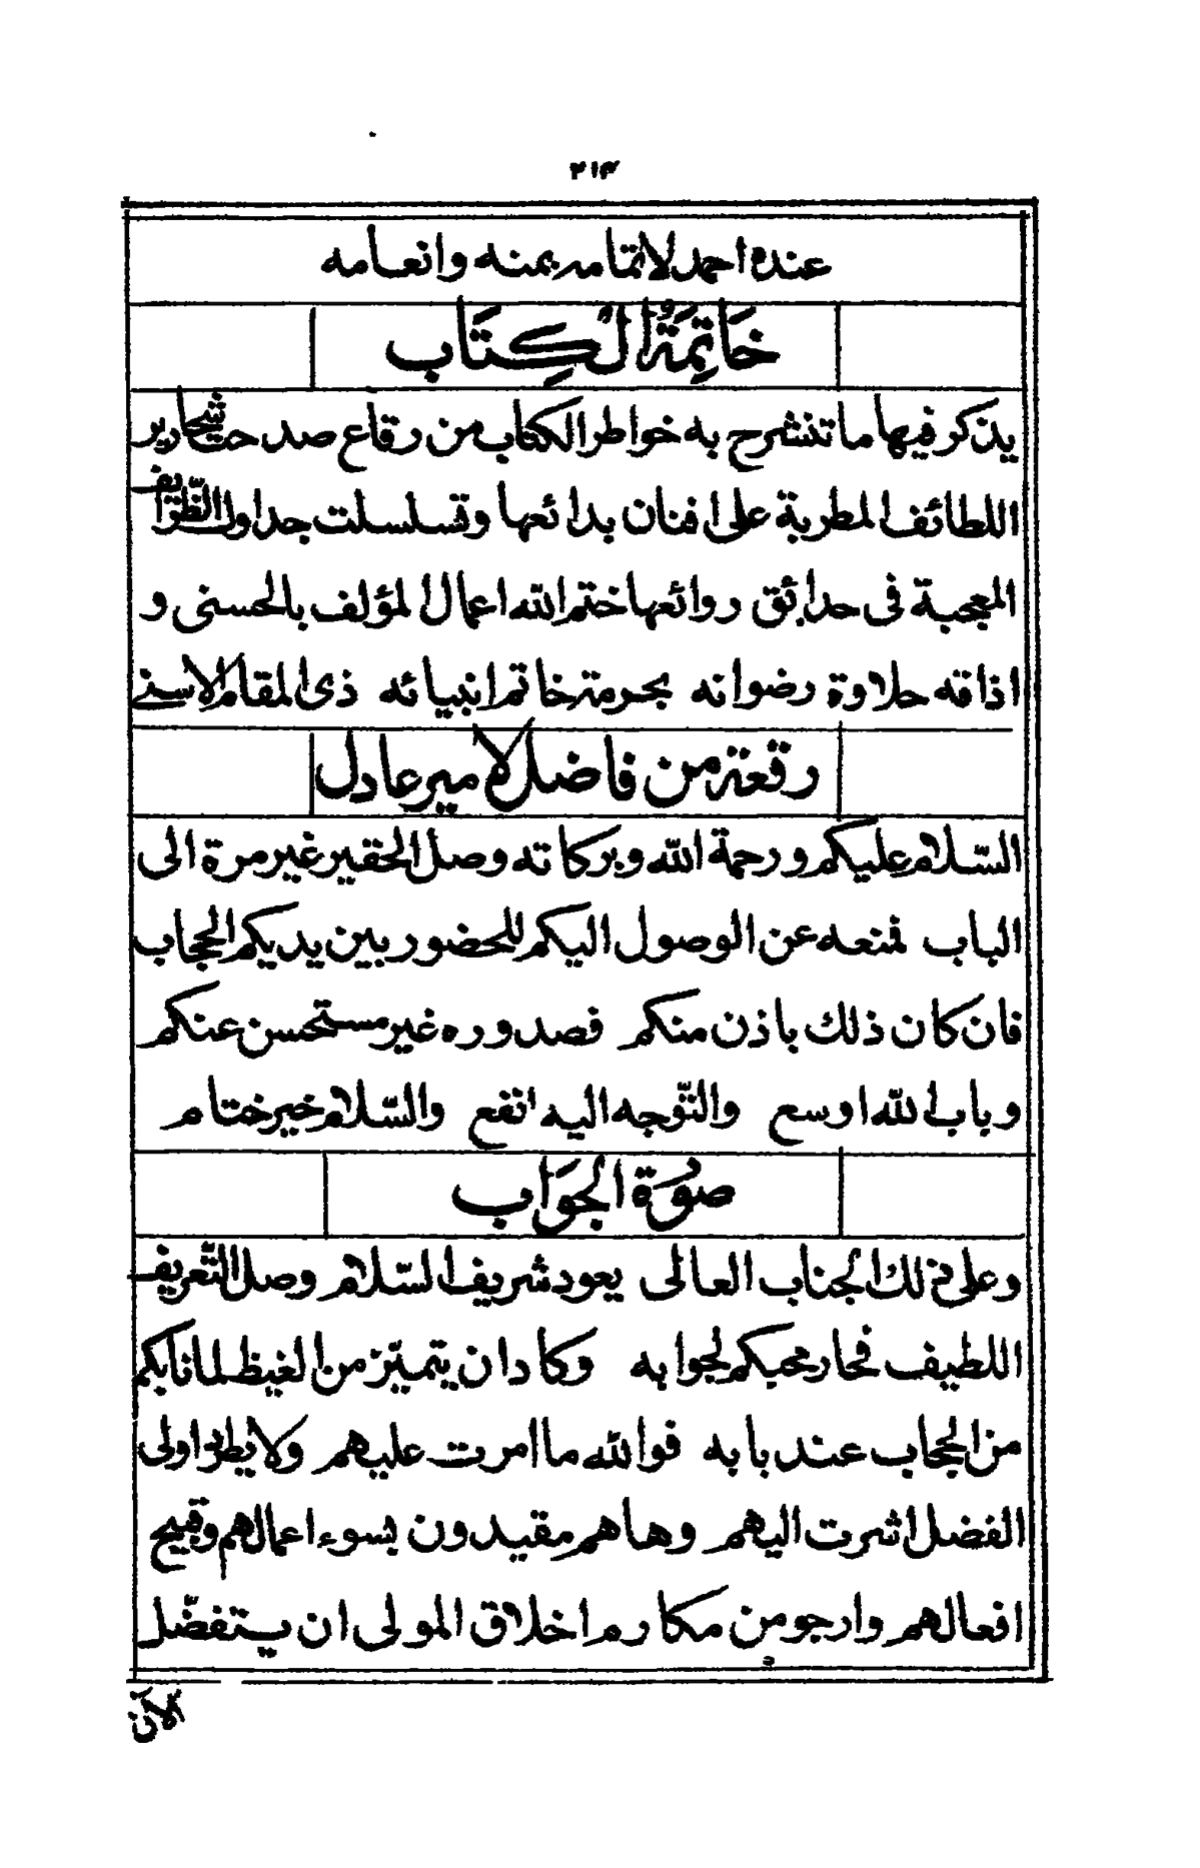 ٢١٣
عنده احمد لاتمامه بمنه وانعامه
خَاتِمَةُ الْكِتَاب
يذكر فيها ما تنشرح به خواطر الكتاب من رقاع صدحت شحارير
اللطائف المطربة على افنان بدائعها وتسلسلت جداول الظّرائف
المعجبة فى حدائق روائعها ختم الله اعمال المؤلف بالحسنى و
اذاقه حلاوة رضوانه بحرمة خاتم انبيائه ذى المقام الاسنے
رقعة من فاضل لامير عادل
السّلام عليكم ورحمة الله وبركاته وصل الحقير غير مرة الى
الباب فمنعه عن الوصول اليكم للحضور بين يديكم الحجاب
فان كان ذلك باذن منكم فصدوره غير مستحسن عنكم
وباب الله اوسع والتّوجه اليه انفع والسّلام خير ختام
صورَة الجَوَاب
وعلى ذلك الجناب العالى يعود شريف السّلام وصل التّعريف
اللطيف فحار محبكم لجوابه وكاد ان يتميّز من الغيظ لما نابكم
من الحجاب عند بابه فوالله ما امرت عليهم ولا بطرد اولى
الفضل اشرت اليهم وها هم مقيدون بسوء اعمالهم وقبيح
افعالهم وارجو من مكارم اخلاق المولى ان يتفضّل
الآن